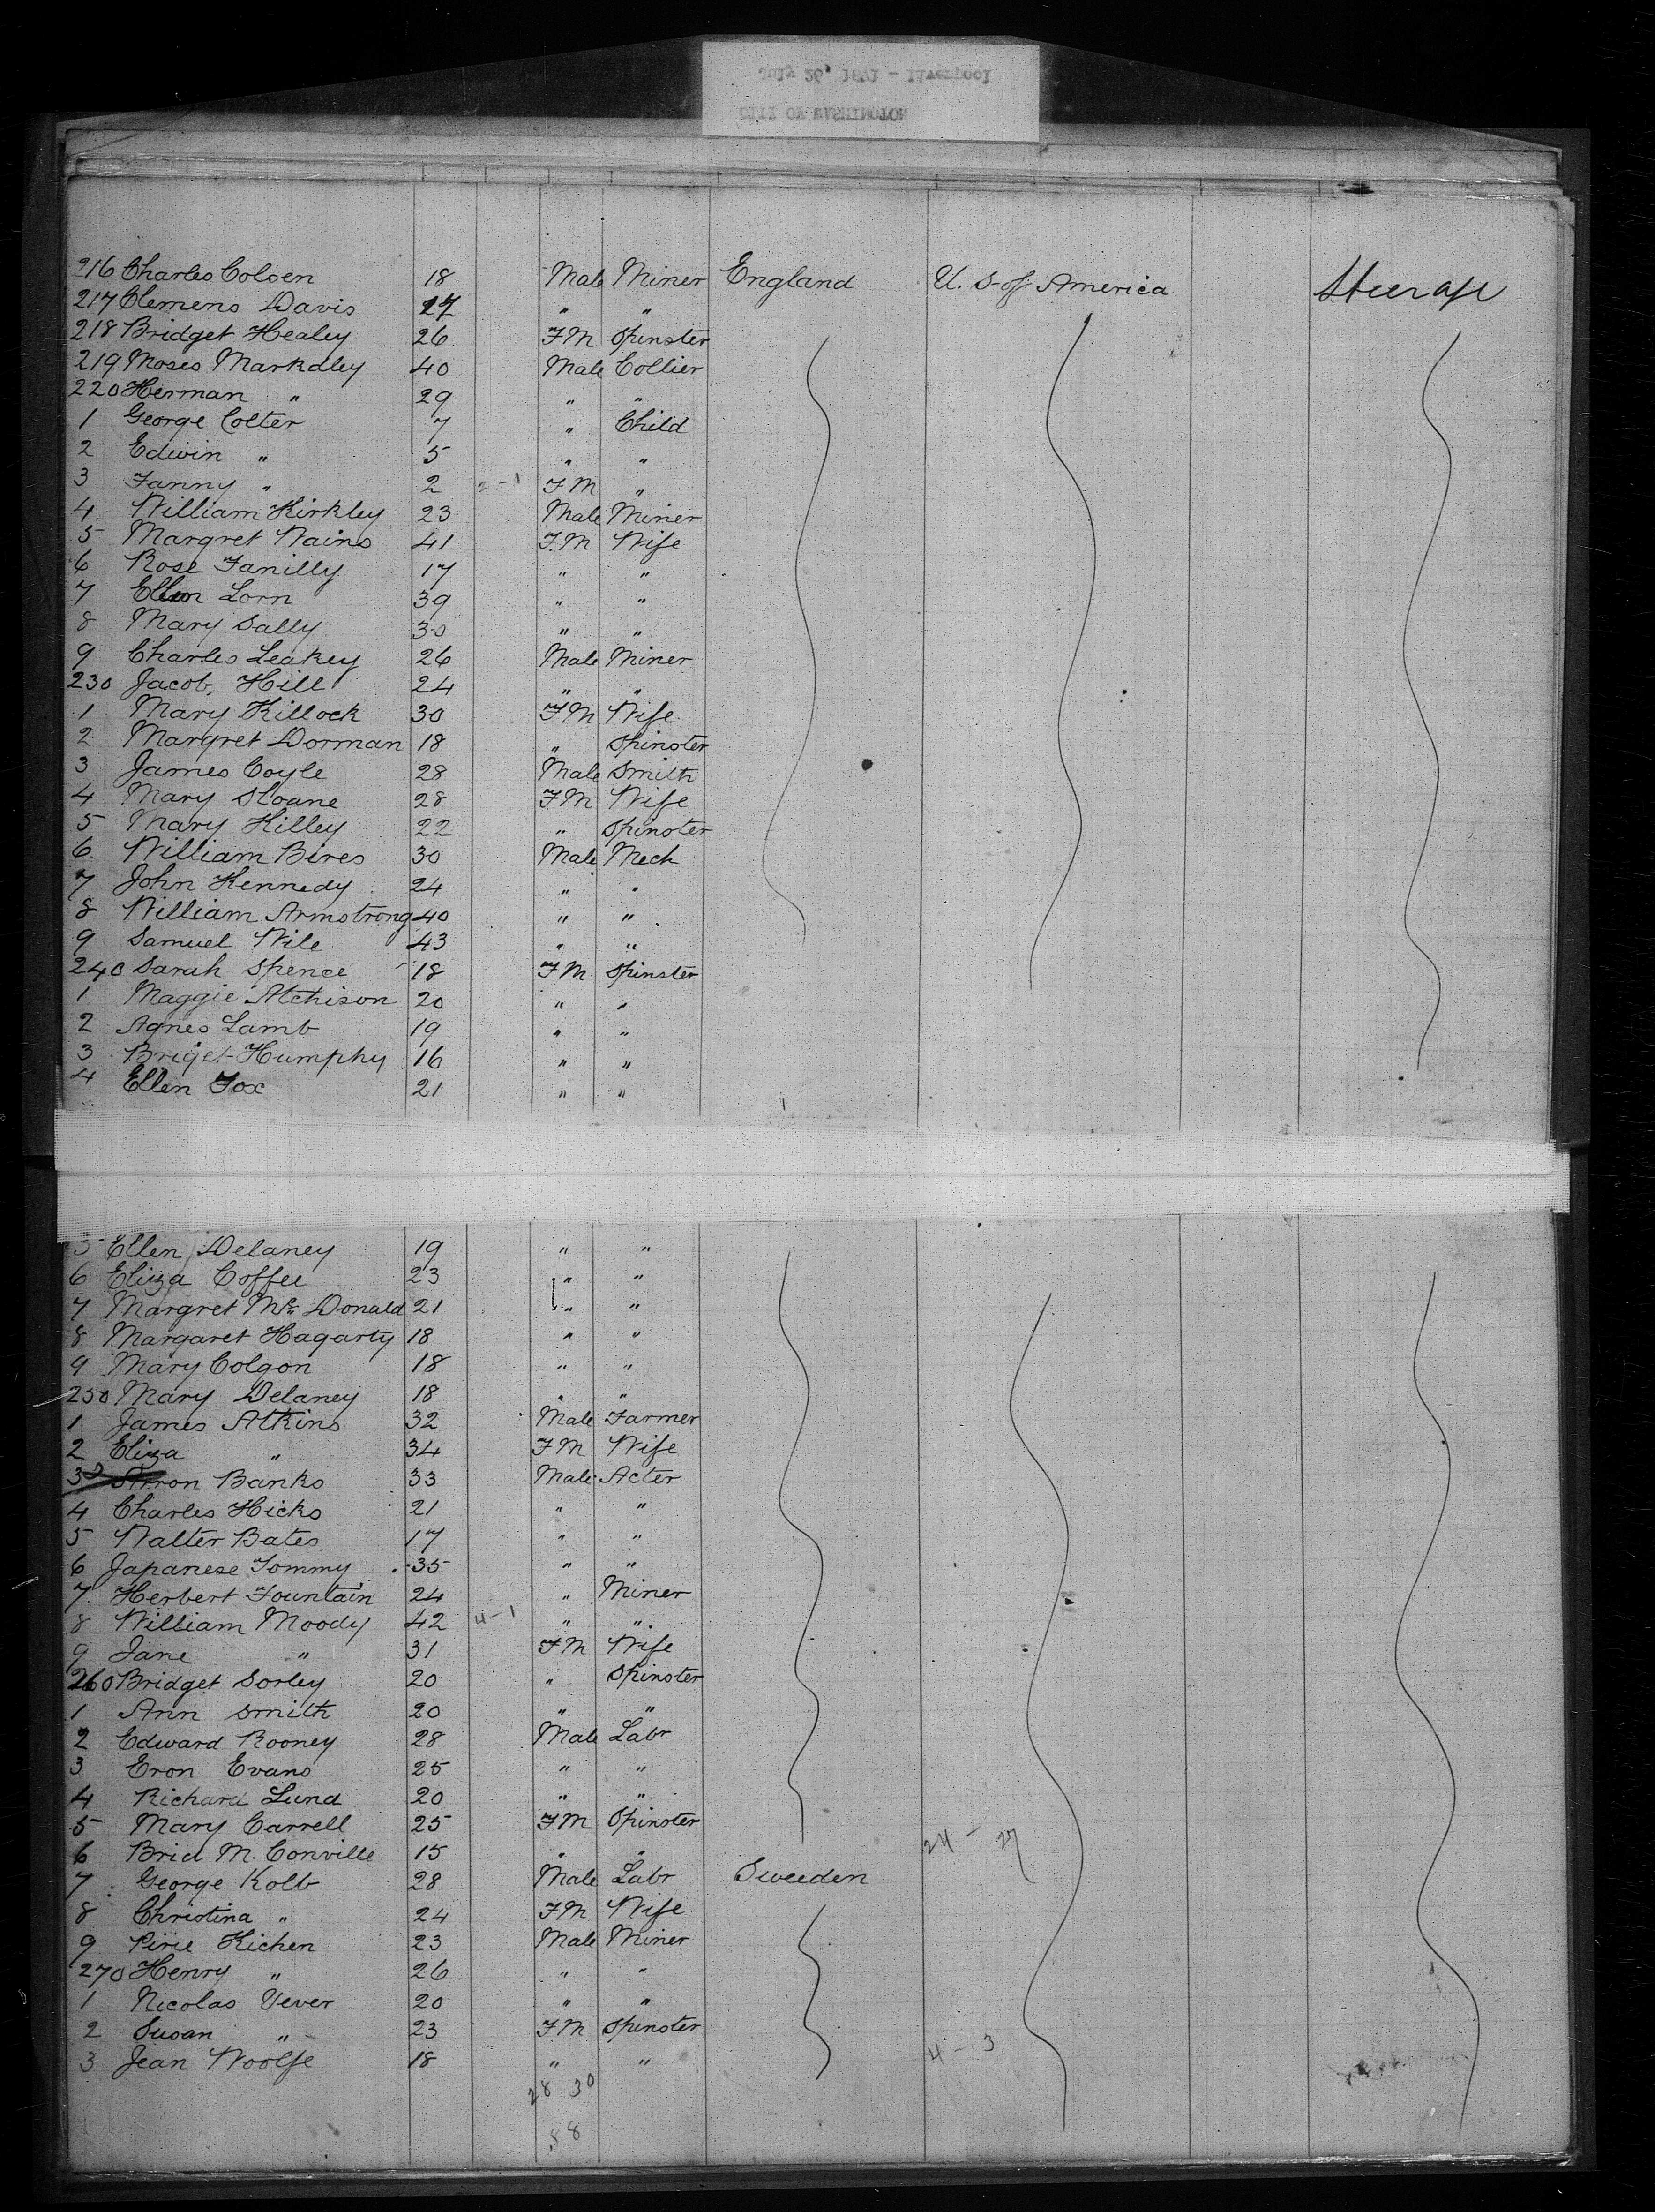 July 26, 1871 - Liverpool
CITY OF WASHINGTON
216 Charles Colsen 18 Male Miner England U. S of America Steerage
217 Clemens Davis 27 " "
218 Bridget Healey 26 FM Spinster
219 Moses Markdley 40 Male Collier
220 Herman " 29 " "
1 George Colter 7 " Child
2 Edwin " 5 " "
3 Fanny " 2 2-1 FM "
4 William Kirkley 23 Male Miner
5 Margret Wains 41 F.M Wife
6 Rose Fanilly 17 " "
7 Ellen Lorn 39 " "
8 Mary Sally 30 " "
9 Charles Leakey 26 Male Miner
230 Jacob Hill 24 " "
1 Mary Killock 30 FM Wife
2 Margret Dorman 18 " Spinster
3 James Coyle 28 Male Smith
4 Mary Sloane 28 FM Wife
5 Mary Killey 22 " Spinster
6 William Bires 30 Male Mech
7 John Kennedy 24 " "
8 William Armstrong 40 " "
9 Samuel Wile 43 " "
240 Sarah Spence 18 FM Spinster
1 Maggie Atchison 20 " "
2 Agnes Lamb 19 " "
3 Briget Humphy 16 " "
4 Ellen Fox 21 " "
5 Ellen Delaney 19 " "
6 Eliza Coffee 23 " "
7 Margret Mc Donald 21 " "
8 Margaret Hagarty 18 " "
9 Mary Colgon 18 " "
250 Mary Delaney 18 " "
1 James Atkins 32 Male Farmer
2 Eliza " 34 FM Wife
3 Arron Banks 33 Male Acter
4 Charles Hicks 21 " "
5 Walter Bates 17 " "
6 Japanese Tommy 35 " "
7 Herbert Fountain 24 " Miner
8 William Moody 42 4-1 " "
9 Jane " 31 FM Wife
260 Bridget Sorley 20 " Spinster
1 Ann Smith 20 " "
2 Edward Rooney 28 Male Labr
3 Eron Evans 25 " "
4 Richard Lund 20 " "
5 Mary Carrell 25 FM Spinster
6 Brid M. Conville 15 " " 24 - 27
7 George Kolb 28 Male Labr Sweeden
8 Christina " 24 FM Wife
9 Pirie Kichen 23 Male Miner
270 Henry " 26 " "
1 Nicolas Vever 20 " "
2 Susan " 23 FM Spinster
3 Jean Woolfe 18 " " 4 - 3
28 30
58